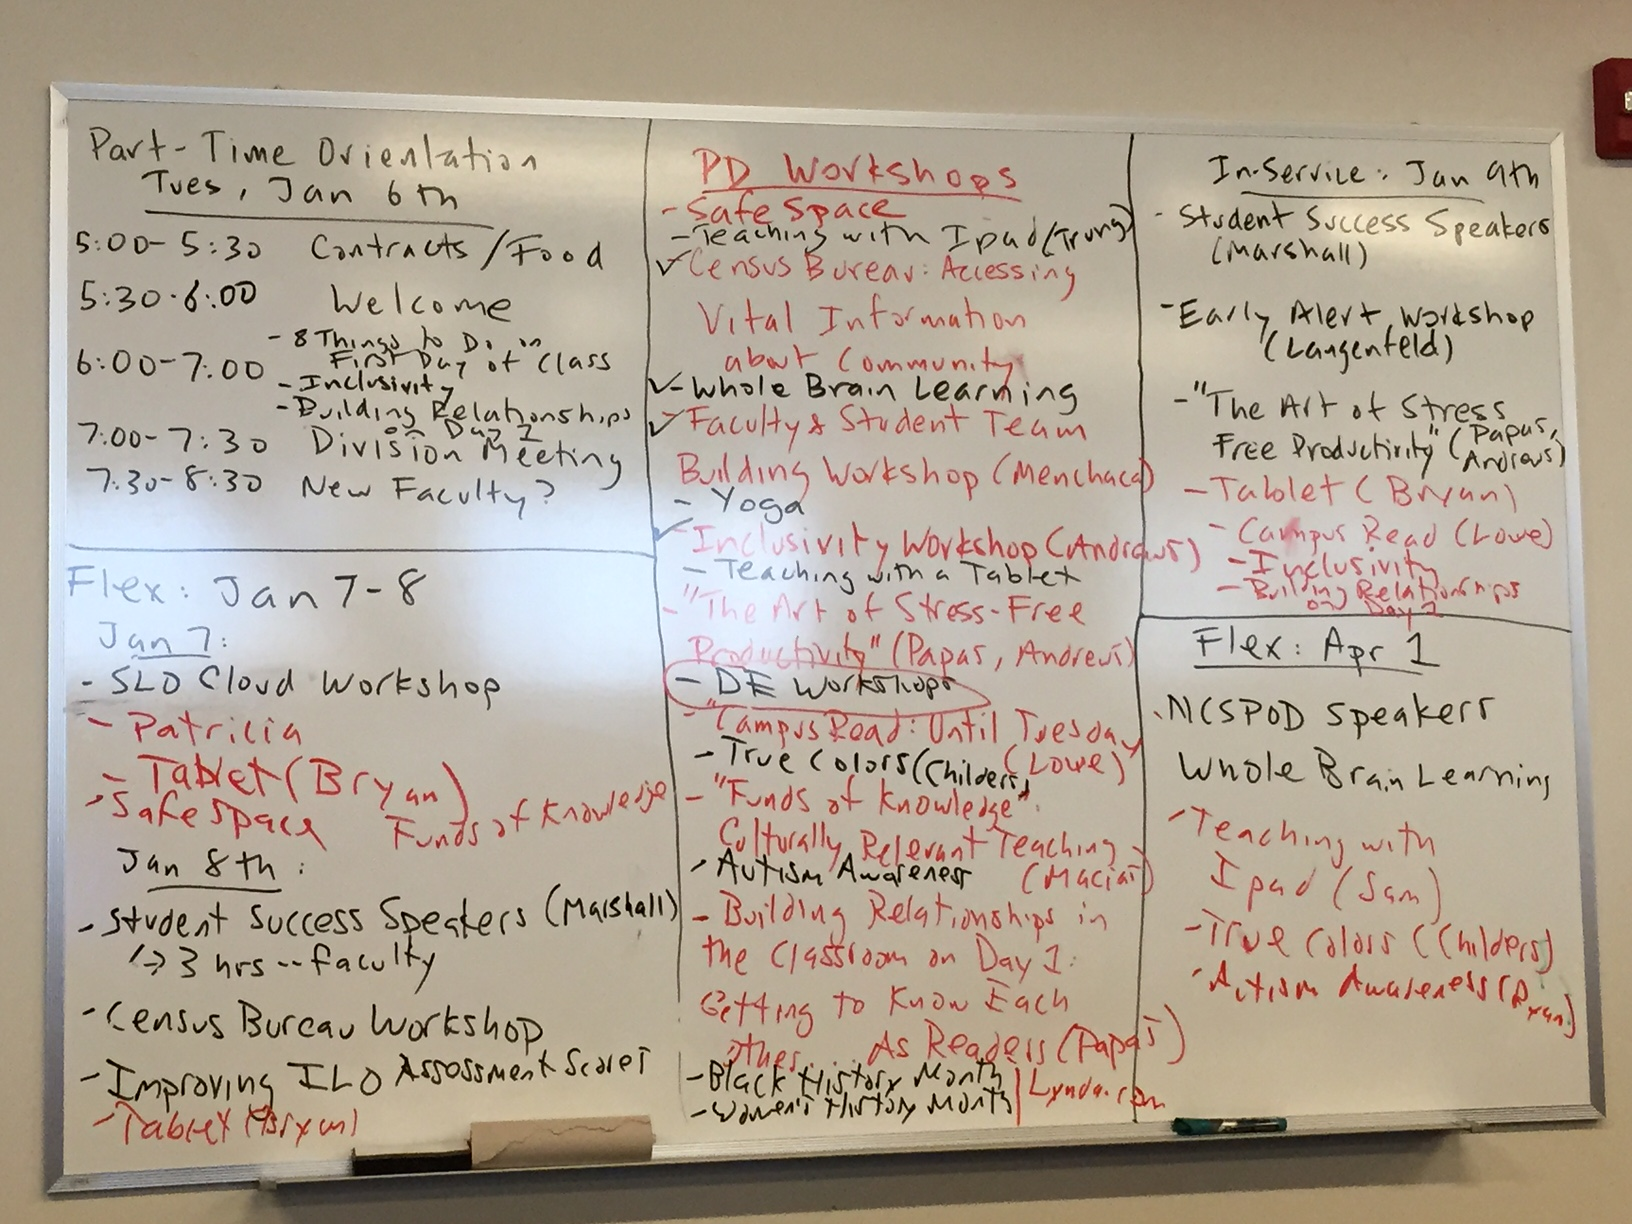 Part-Time Orientation
Tues, Jan 6th
5:00-5:30 Contracts/Food
5:30-6:00 Welcome
- 8 Things to Do on
First Day of Class
6:00-7:00
- Inclusivity
- Building Relationships
on Day 1
7:00-7:30 Division Meeting
7:30-8:30 New Faculty?
Flex: Jan 7-8
Jan 7:
- SLO Cloud Workshop
- Patricia
- Tablet (Bryan)
- Safe Space Funds of Knowledge
Jan 8th:
- Student Success Speakers (Marshall)
↳ 3 hrs -- faculty
- Census Bureau Workshop
- Improving ILO Assessment Scores
- Tablet (Bryan)
PD Workshops
- Safe Space
- Teaching with Ipad (Trung)
✓ Census Bureau: Accessing
Vital Information
about Community
✓- Whole Brain Learning
✓ Faculty & Student Team
Building Workshop (Menchaca)
- Yoga
✓ Inclusivity Workshop (Andrews)
- Teaching with a Tablet
- "The Art of Stress-Free
Productivity" (Papas, Andrews)
- DE Workshops
- "Campus Read: Until Tuesday
(Lowe)
- True Colors (Childers)
- "Funds of Knowledge"
Culturally Relevant Teaching
(Macias)
- Autism Awareness
- Building Relationships in
the Classroom on Day 1:
Getting to Know Each
other As Readers (Papas)
- Black History Month
- Women's History Month | Lynda.com
In-Service: Jan 9th
- Student Success Speakers
(Marshall)
- Early Alert Workshop
(Langenfeld)
- "The Art of Stress
Free Productivity" (Papas,
Andrews)
- Tablet (Bryan)
- Campus Read (Lowe)
- Inclusivity
- Building Relationships
on Day 1
Flex: Apr 1
- NCSPOD Speakers
Whole Brain Learning
- Teaching with
Ipad (Sam)
- True Colors (Childers)
- Autism Awareness (Ryan)